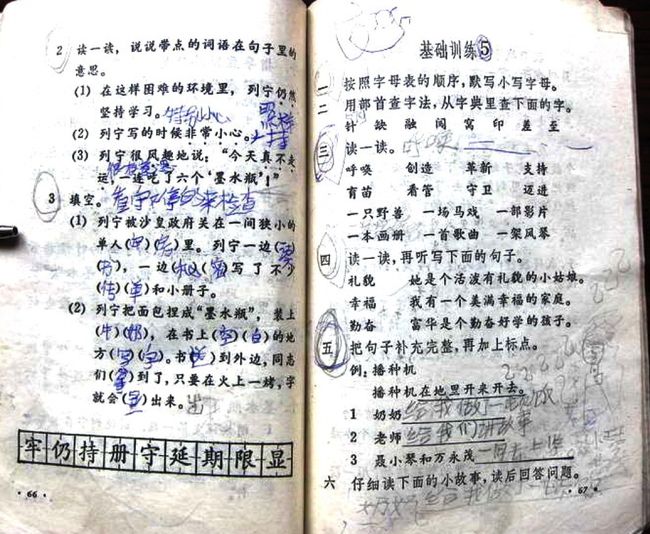 2 读一读，说说带点的词语在句子里的
意思。
(1) 在这样困难的环境里，列宁仍然
坚持学习。特别小心 照样
(2) 列宁写的时候非常小心。
(3) 列宁很风趣地说：“今天真不走
运，一连吃了六个‘墨水瓶’！”
看守不停的来检查
3 填空。
(1) 列宁被沙皇政府关在一间狭小的
单人(牢)(房)里。列宁一边
，一边(秘)(密)写了不少
(传)(单)和小册子。
(2) 列宁把面包捏成“墨水瓶”，装上
(牛)(奶)，在书上(空)(白)的地
方(写)(字)。书 到外边，同志
们 到了，只要在火上一烤，字
就会(显)出来。出
牢仍持册守延期限显
·66·
基础训练5
一 按照字母表的顺序，默写小写字母。
二 用部首查字法，从字典里查下面的字。
针 缺 融 闯 窝 印 盖 至
三 读一读。呼唤
呼唤 创造 革新 支持
育苗 看管 守卫 迈进
一只野兽 一场马戏 一部影片
一本画册 一首歌曲 一架风琴
四 读一读，再听写下面的句子。
礼貌 她是个活泼有礼貌的小姑娘。
幸福 我有一个美满幸福的家庭。
勤奋 富华是个勤奋好学的孩子。
五 把句子补充完整，再加上标点。
例：播种机
播种机在地里开来开去。
1 奶奶给我做了一
2 老师给我们讲故事
3 聂小琴和万永茂一同去上学
六 仔细读下面的小故事，读后回答问题。
奶奶给我做
·67·